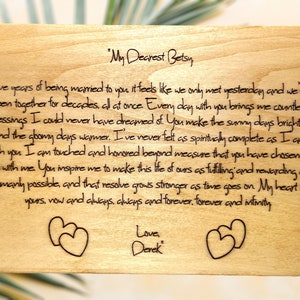 "My Dearest Betsy,
years of being married to you it feels like we only met yesterday and we
together for decades, all at once. Every day with you brings me
I could never have dreamed of. You make the sunny days
and the gloomy days warmer. I've never felt as spiritually complete as I
you. I am touched and honored beyond measure that you have chosen
with me. You inspire me to make this life of ours as fulfilling and rewarding
possible, and that resolve grows stronger as time goes on. My heart
yours, now and always, always and forever, forever and infinity.
Love,
Derek"